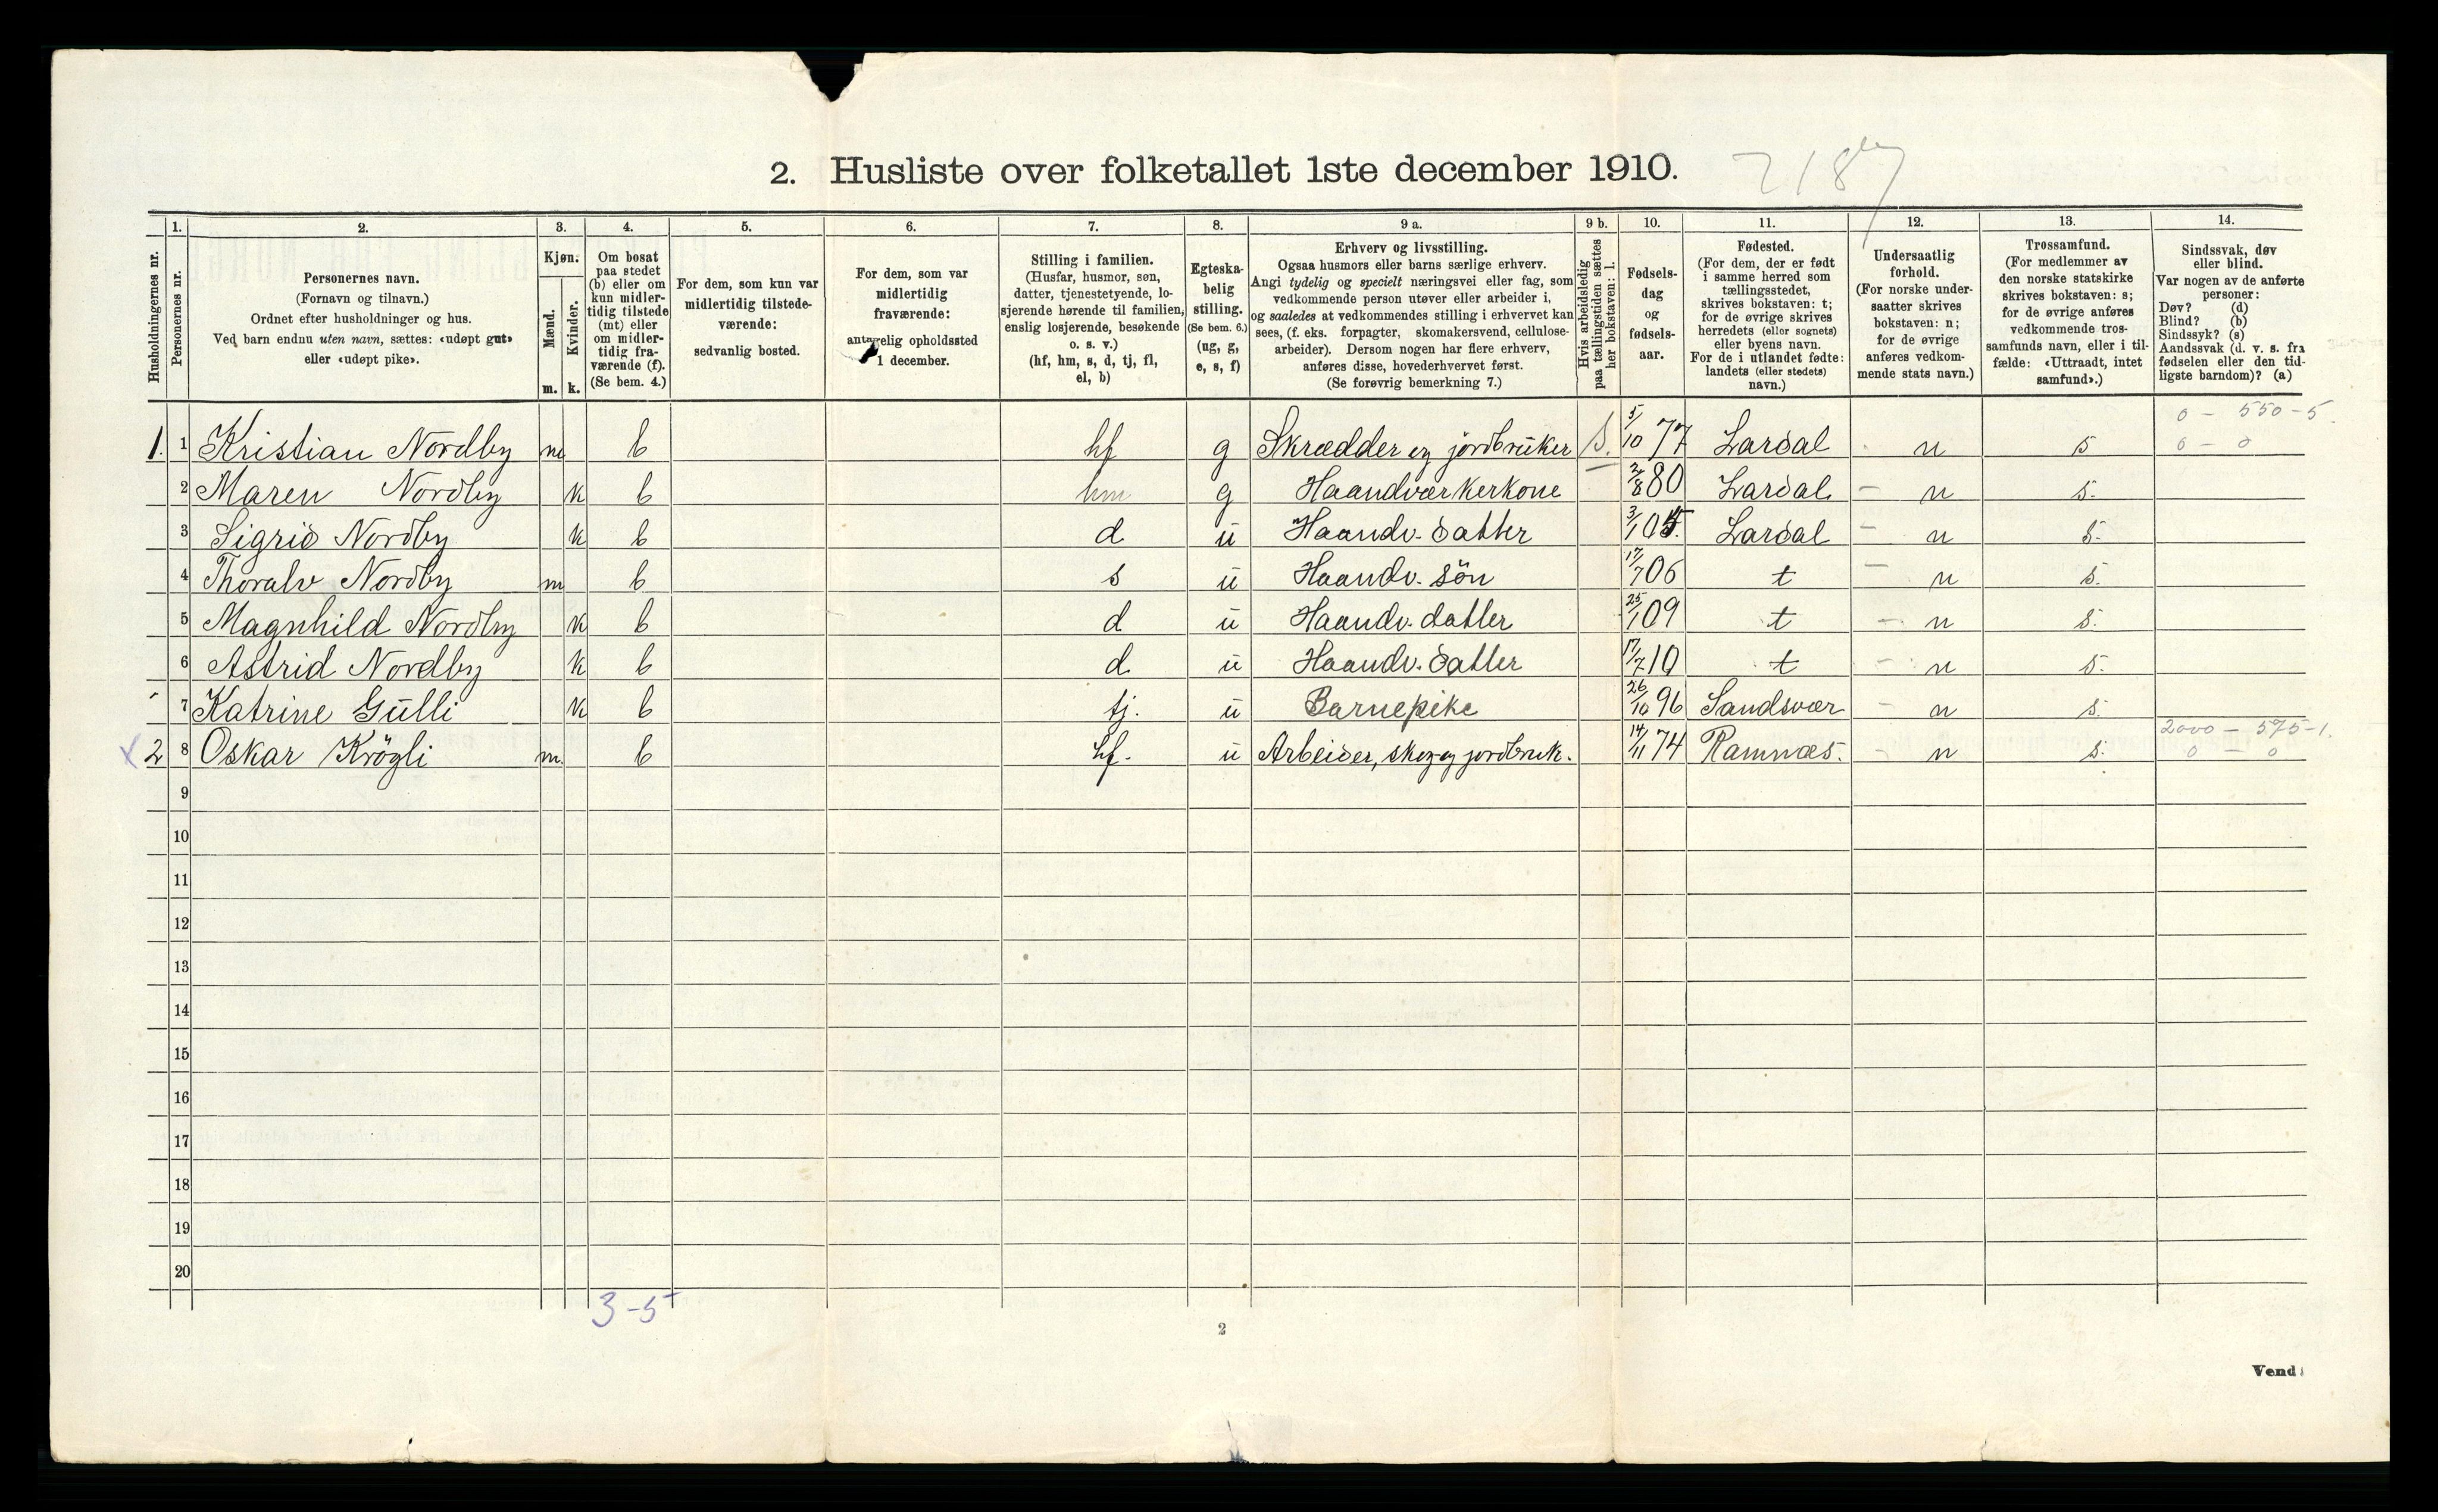 2. Husliste over folketallet 1ste december 1910.
1. 2. 3. 4. 5. 6. 7. 8. 9 a. 9 b. 10. 11. 12. 13. 14.
Husholdningernes nr.
Personernes nr.
Personernes navn.
(Fornavn og tilnavn.)
Ordnet efter husholdninger og hus.
Ved barn endnu uten navn, sættes: «udøpt gut»
eller «udøpt pike».
Kjøn.
Mænd.
Kvinder.
m. k.
Om bosat
paa stedet
(b) eller om
kun midler-
tidig tilstede
(mt) eller
om midler-
tidig fra-
værende (f).
(Se bem. 4.)
For dem, som kun var
midlertidig tilstede-
værende:
sedvanlig bosted.
For dem, som var
midlertidig
fraværende:
antagelig opholdssted
1 december.
Stilling i familien.
(Husfar, husmor, søn,
datter, tjenestetyende, lo-
sjerende hørende til familien,
enslig losjerende, besøkende
o. s. v.)
(hf, hm, s, d, tj, fl,
el, b)
Egteska-
belig
stilling.
(Se bem. 6.)
(ug, g,
e, s, f)
Erhverv og livsstilling.
Ogsaa husmors eller barns særlige erhverv.
Angi tydelig og specielt næringsvei eller fag, som
vedkommende person utøver eller arbeider i,
og saaledes at vedkommendes stilling i erhvervet kan
sees, (f. eks. forpagter, skomakersvend, cellulose-
arbeider). Dersom nogen har flere erhverv,
anføres disse, hovederhvervet først.
(Se forøvrig bemerkning 7.)
Hvis arbeidsledig
paa tællingstiden sættes
her bokstaven: l.
Fødsels-
dag
og
fødsels-
aar.
Fødested.
(For dem, der er født
i samme herred som
tællingsstedet,
skrives bokstaven: t;
for de øvrige skrives
herredets (eller sognets)
eller byens navn.
For de i utlandet fødte:
landets (eller stedets)
navn.)
Undersaatlig
forhold.
(For norske under-
saatter skrives
bokstaven: n;
for de øvrige
anføres vedkom-
mende stats navn.)
Trossamfund.
(For medlemmer av
den norske statskirke
skrives bokstaven: s;
for de øvrige anføres
vedkommende tros-
samfunds navn, eller i til-
fælde: «Uttraadt, intet
samfund».)
Sindssvak, døv
eller blind.
Var nogen av de anførte
personer:
Døv? (d)
Blind? (b)
Sindssyk? (s)
Aandssvak (d. v. s. fra
fødselen eller den tid-
ligste barndom)? (a)
0 - 550-5
1. 1 Kristian Nordby m b hf g Skrædder og jordbruker S. 5/10 77 Lardal n s 0 - 0
2 Maren Nordby k b hm g Haandværkerkone 2/8 80 Lardal - n s.
3 Sigrid Nordby k b d ü Haandv. datter 3/1 05 Lardal - n s.
4 Thoralv Nordby m b s ü Haandv. sön 17/7 06 t - n s.
5 Magnhild Nordby k b d ü Haandv. datter 25/1 09 t - n s.
6 Astrid Nordby k b d. ü Haandv. datter 17/7 10 t - n s.
7 Katrine Gülli k b tj. ü Barnepike 26/10 96 Sandsvær - n s.
2000 - 575-1.
x 2 8 Oskar Krögli m. b hf. ü Arbeider, skog og jordbruk. 14/11 74 Ramnæs. - n s. 0 - 0
9
10
11
12
13
14
15
16
17
18
19
20
3-5
2
Vend